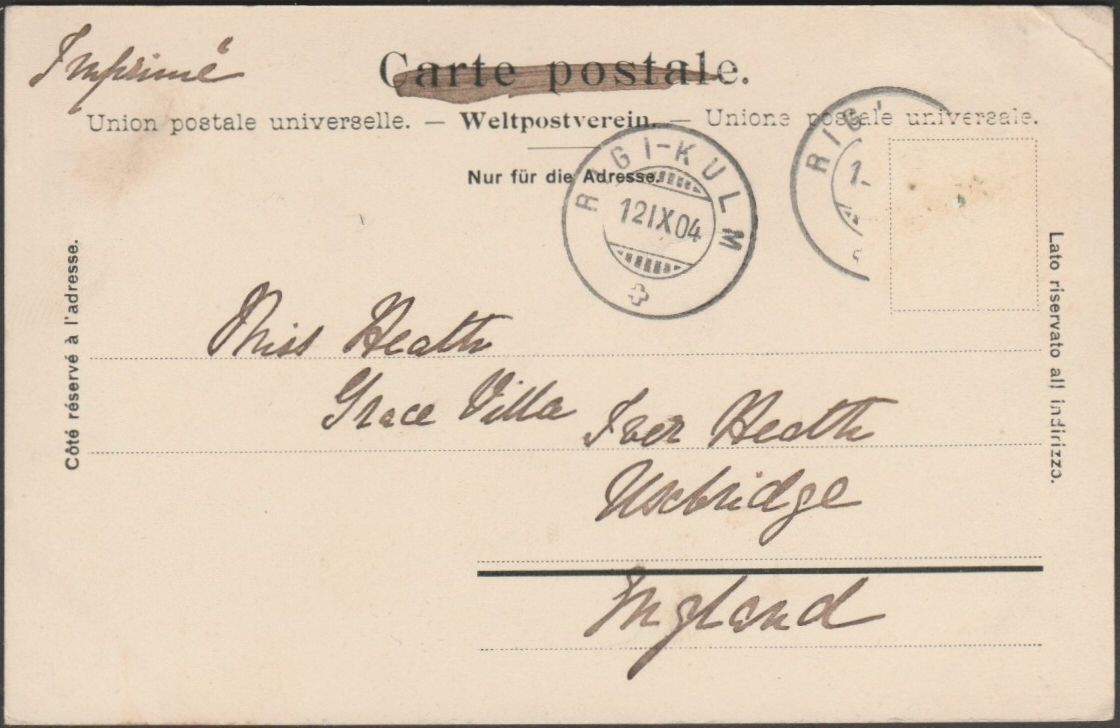 Imprimé
Carte postale.
Union postale universelle. — Weltpostverein. — Unione postale universale.
Nur für die Adresse.
RIGI-KULM
12 IX 04
RIGI
1
Côté réservé à l'adresse.
Lato riservato all indirizzo.
Miss Heath
Grace Villa Iver Heath
Uxbridge
England